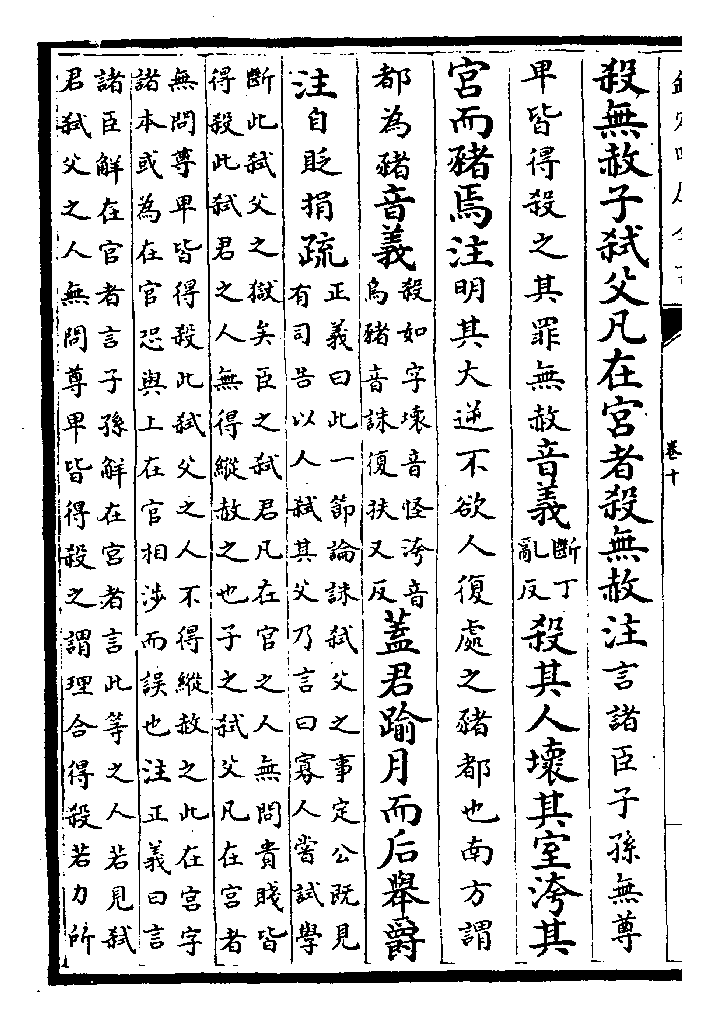 卷十
殺無赦子弒父凡在宮者殺無赦注言諸臣子孫無尊
卑皆得殺之其罪無赦音義斷丁亂反殺其人壞其室洿其
宮而豬焉注明其大逆不欲人復處之豬都也南方謂
都為豬音義殺如字壞音怪洿音烏豬音誅復扶又反蓋君踰月而后舉爵
注自貶捐疏正義曰此一節論誅弒父之事定公既見有司告以人弒其父乃言曰寡人嘗試學
斷此弒父之獄矣臣之弒君凡在官之人無問貴賤皆
得殺此弒君之人無得縱赦之也子之弒父凡在宮者
無問尊卑皆得殺此弒父之人不得縱赦之此在宮字
諸本或為在官恐與上在官相涉而誤也注正義曰言
諸臣解在官者言子孫解在宮者言此等之人若見弒
君弒父之人無問尊卑皆得殺之謂理合得殺若力所